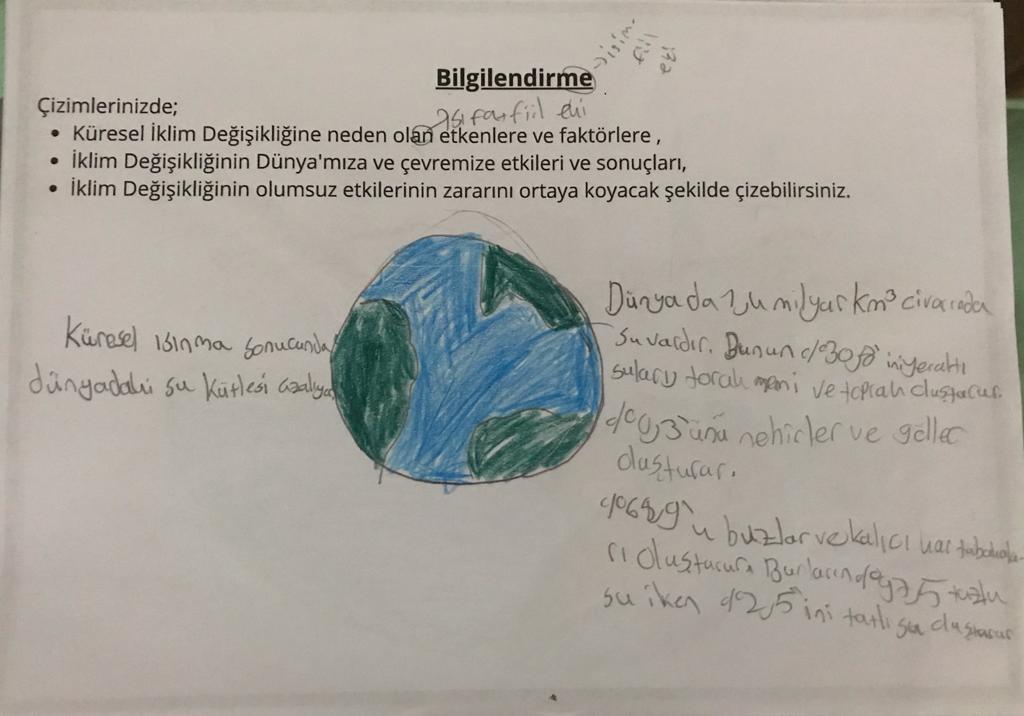 Bilgilendirme
isim
fiil
eki
Çizimlerinizde;
sıfatfiil eki
• Küresel İklim Değişikliğine neden olan etkenlere ve faktörlere ,
• İklim Değişikliğinin Dünya'mıza ve çevremize etkileri ve sonuçları,
• İklim Değişikliğinin olumsuz etkilerinin zararını ortaya koyacak şekilde çizebilirsiniz.
Küresel ısınma sonucunda
dünyadaki su kütlesi azalıyor
Dünyada 1,4 milyar km³ civarında
su vardır. Bunun %30,8'ini yeraltı
suları ve toprak oluşturur.
%0,3'ünü nehirler ve göller
oluşturur.
%68,9'u buzlar ve kalıcı kar tabakala-
rı oluşturur. Bunların %97,5 tuzlu
su iken %2,5'ini tatlı su oluşturur